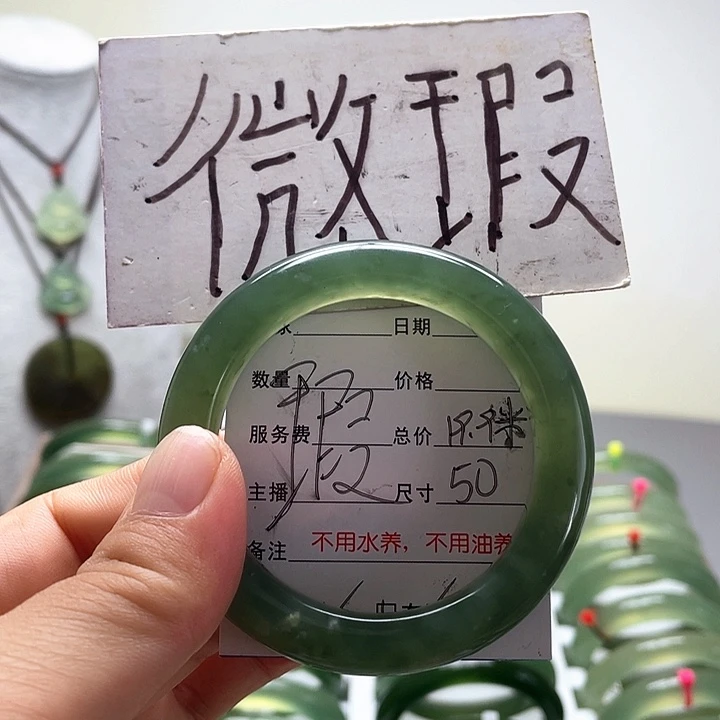 微瑕
日期
数量 瑕 价格
服务费 总价
主播 尺寸 50
备注 不用水养，不用油养